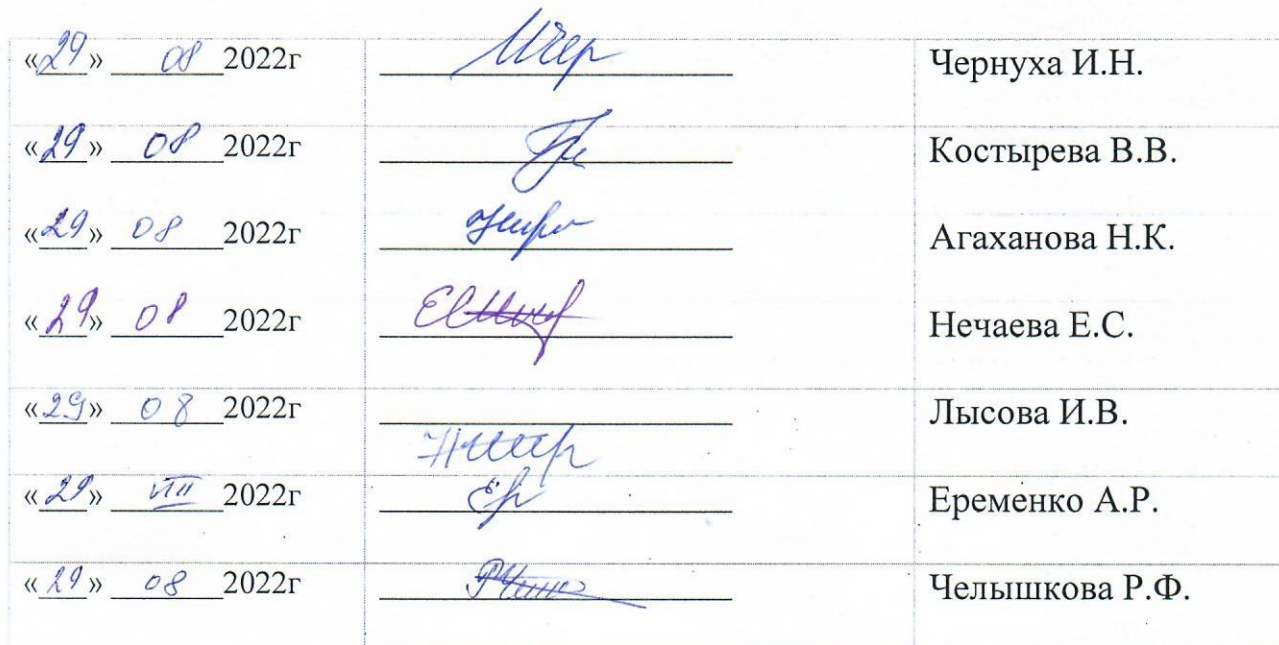 «29» 08 2022г Чернуха И.Н.
«29» 08 2022г Костырева В.В.
«29» 08 2022г Агаханова Н.К.
«29» 08 2022г Нечаева Е.С.
«29» 08 2022г Лысова И.В.
«29» VIII 2022г Еременко А.Р.
«29» 08 2022г Челышкова Р.Ф.